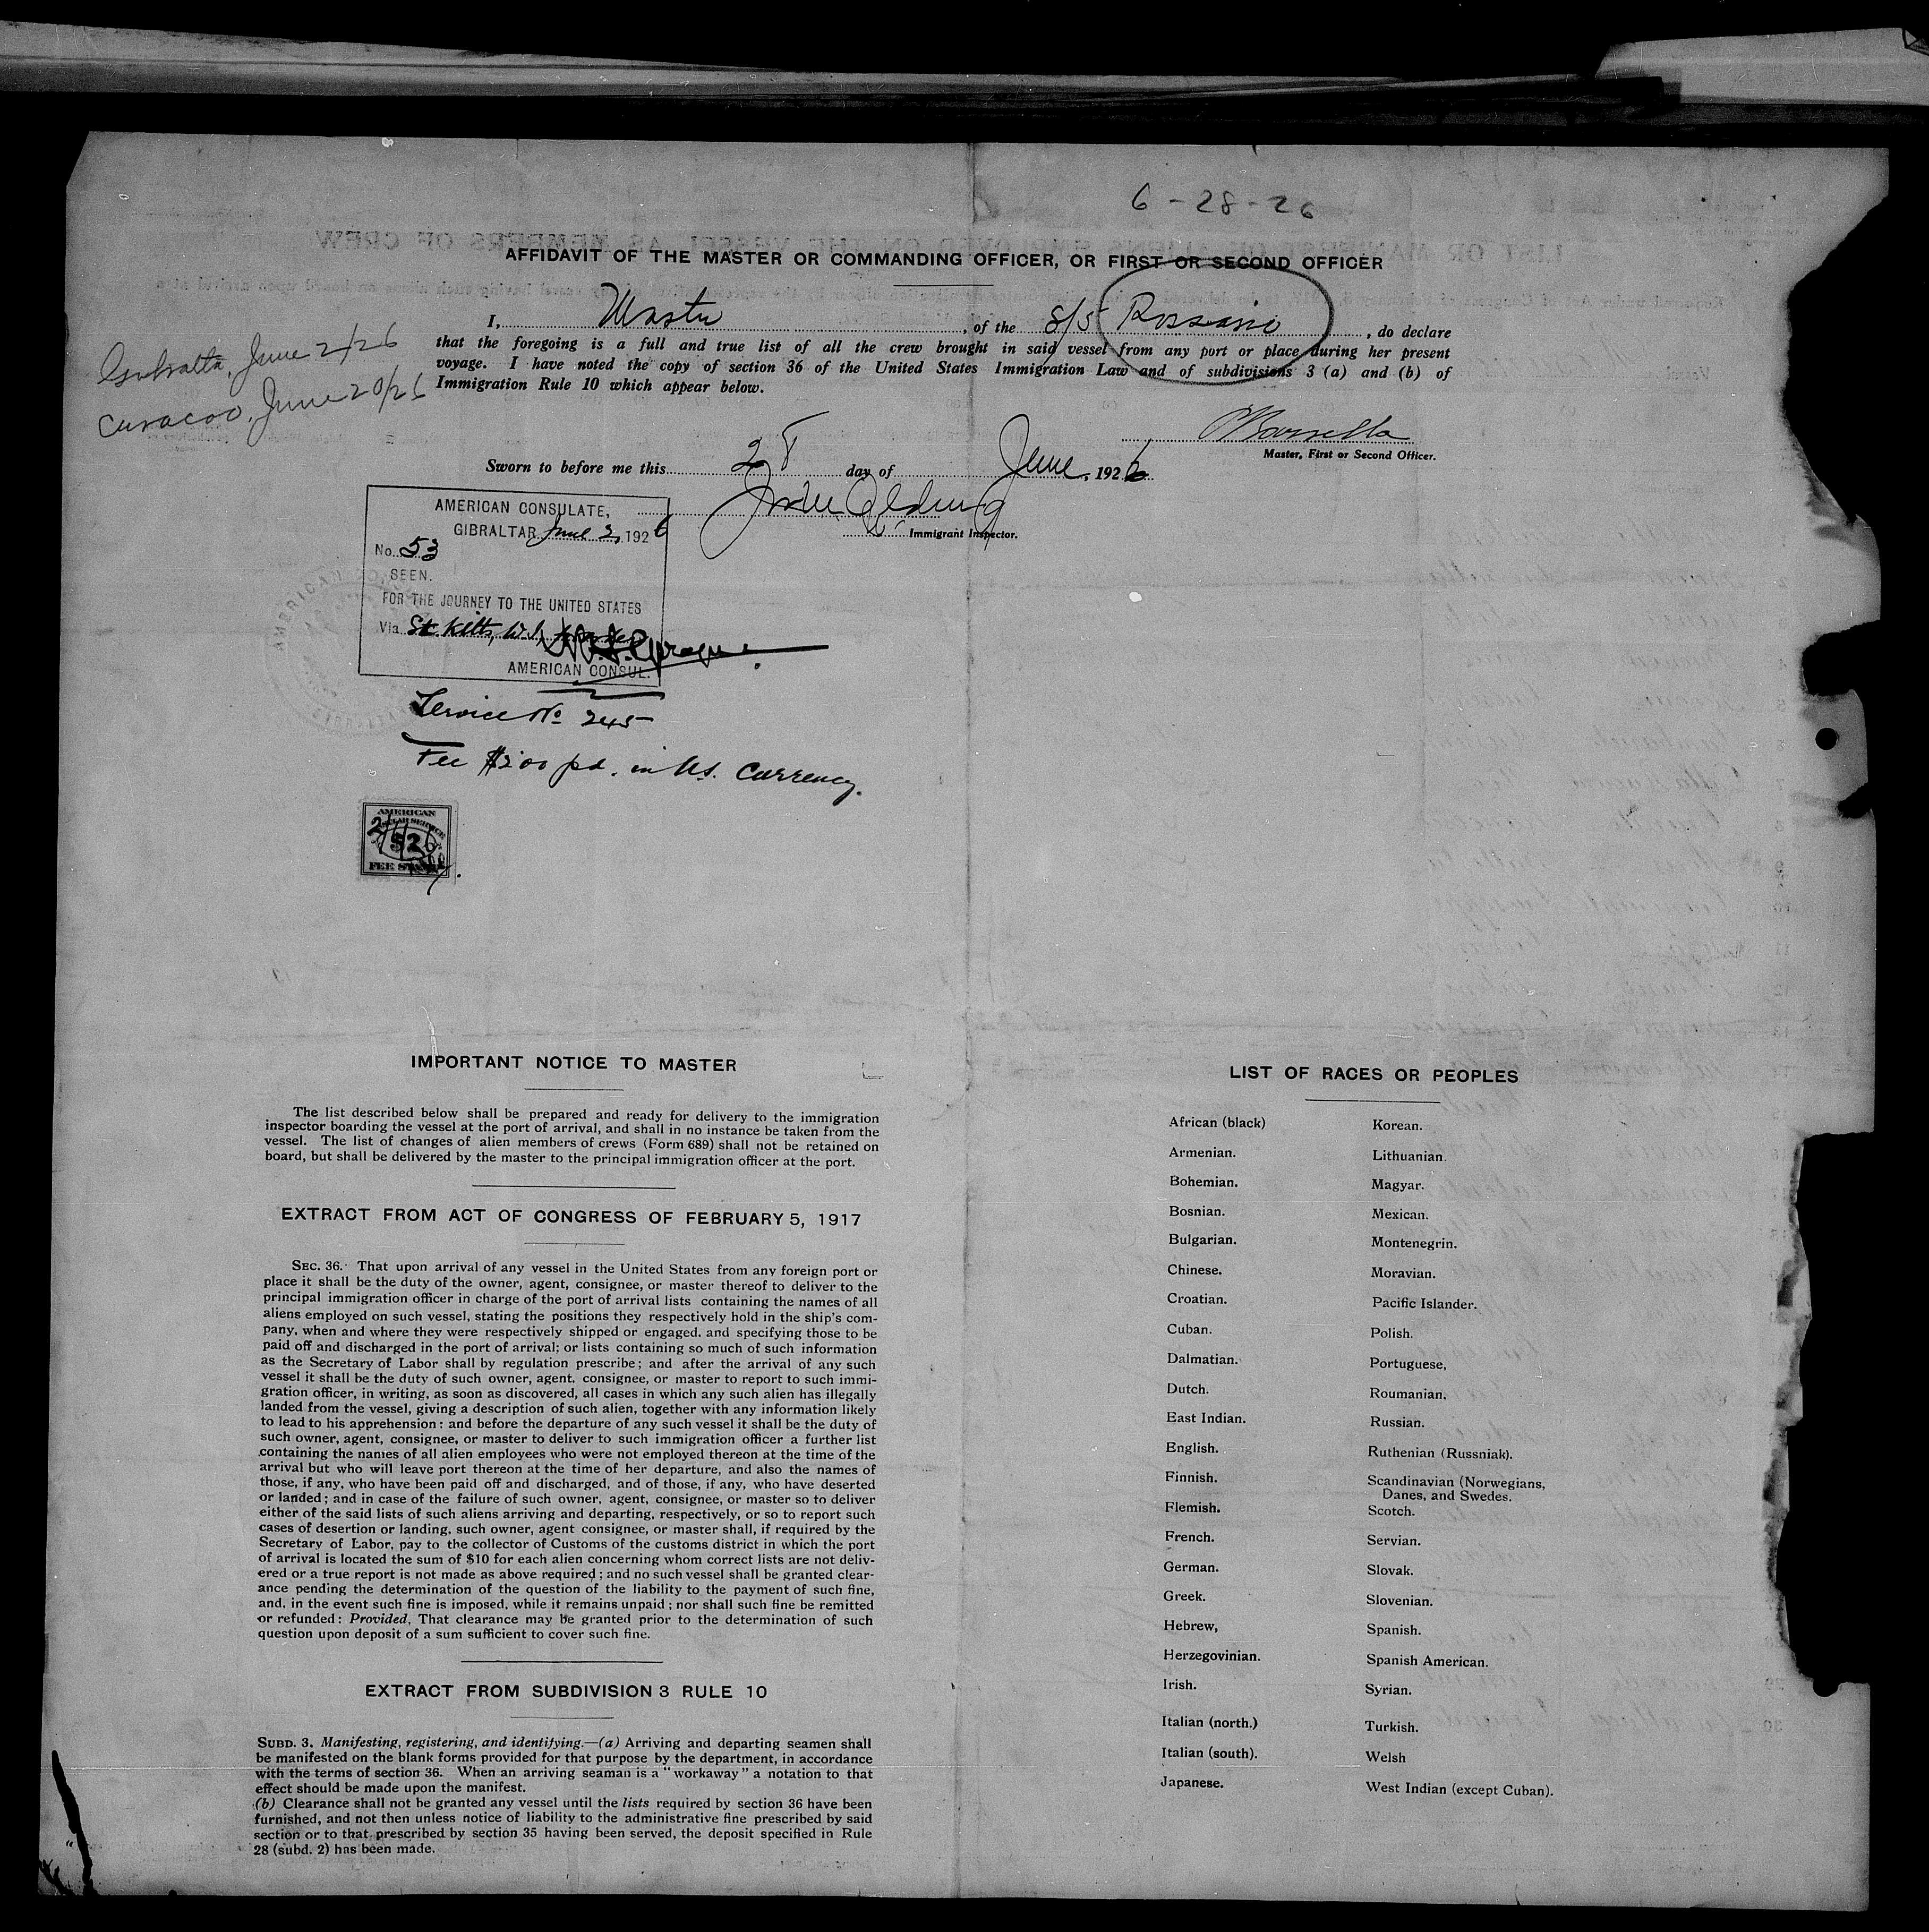 6-28-26
AFFIDAVIT OF THE MASTER OR COMMANDING OFFICER, OR FIRST OR SECOND OFFICER
I, Master, of the S/S Rossano, do declare
that the foregoing is a full and true list of all the crew brought in said vessel from any port or place during her present
voyage. I have noted the copy of section 36 of the United States Immigration Law and of subdivisions 3 (a) and (b) of
Immigration Rule 10 which appear below.
Gibralta, June 2/26
Curacoo, June 20/26
Master, First or Second Officer.
Sworn to before me this 28 day of June, 1926
Immigrant Inspector.
AMERICAN CONSULATE,
GIBRALTAR June 2, 1926
No. 53
SEEN.
FOR THE JOURNEY TO THE UNITED STATES
Via St. Kitts, W.I.
AMERICAN CONSUL.
Service No 245
Fee $2.00 pd. in U.S. Currency.
AMERICAN
CONSULAR SERVICE
$2
FEE STAMP
IMPORTANT NOTICE TO MASTER
The list described below shall be prepared and ready for delivery to the immigration
inspector boarding the vessel at the port of arrival, and shall in no instance be taken from the
vessel. The list of changes of alien members of crews (Form 689) shall not be retained on
board, but shall be delivered by the master to the principal immigration officer at the port.
EXTRACT FROM ACT OF CONGRESS OF FEBRUARY 5, 1917
SEC. 36. That upon arrival of any vessel in the United States from any foreign port or
place it shall be the duty of the owner, agent, consignee, or master thereof to deliver to the
principal immigration officer in charge of the port of arrival lists containing the names of all
aliens employed on such vessel, stating the positions they respectively hold in the ship's com-
pany, when and where they were respectively shipped or engaged, and specifying those to be
paid off and discharged in the port of arrival; or lists containing so much of such information
as the Secretary of Labor shall by regulation prescribe; and after the arrival of any such
vessel it shall be the duty of such owner, agent, consignee, or master to report to such immi-
gration officer, in writing, as soon as discovered, all cases in which any such alien has illegally
landed from the vessel, giving a description of such alien, together with any information likely
to lead to his apprehension: and before the departure of any such vessel it shall be the duty of
such owner, agent, consignee, or master to deliver to such immigration officer a further list
containing the names of all alien employees who were not employed thereon at the time of the
arrival but who will leave port thereon at the time of her departure, and also the names of
those, if any, who have been paid off and discharged, and of those, if any, who have deserted
or landed; and in case of the failure of such owner, agent, consignee, or master so to deliver
either of the said lists of such aliens arriving and departing, respectively, or so to report such
cases of desertion or landing, such owner, agent consignee, or master shall, if required by the
Secretary of Labor, pay to the collector of Customs of the customs district in which the port
of arrival is located the sum of $10 for each alien concerning whom correct lists are not deliv-
ered or a true report is not made as above required; and no such vessel shall be granted clear-
ance pending the determination of the question of the liability to the payment of such fine,
and, in the event such fine is imposed, while it remains unpaid; nor shall such fine be remitted
or refunded: Provided, That clearance may be granted prior to the determination of such
question upon deposit of a sum sufficient to cover such fine.
EXTRACT FROM SUBDIVISION 3 RULE 10
SUBD. 3. Manifesting, registering, and identifying.—(a) Arriving and departing seamen shall
be manifested on the blank forms provided for that purpose by the department, in accordance
with the terms of section 36. When an arriving seaman is a "workaway" a notation to that
effect should be made upon the manifest.
(b) Clearance shall not be granted any vessel until the lists required by section 36 have been
furnished, and not then unless notice of liability to the administrative fine prescribed by said
section or to that prescribed by section 35 having been served, the deposit specified in Rule
28 (subd. 2) has been made.
LIST OF RACES OR PEOPLES
African (black)
Armenian.
Bohemian.
Bosnian.
Bulgarian.
Chinese.
Croatian.
Cuban.
Dalmatian.
Dutch.
East Indian.
English.
Finnish.
Flemish.
French.
German.
Greek.
Hebrew,
Herzegovinian.
Irish.
Italian (north.)
Italian (south).
Japanese.
Korean.
Lithuanian.
Magyar.
Mexican.
Montenegrin.
Moravian.
Pacific Islander.
Polish.
Portuguese,
Roumanian.
Russian.
Ruthenian (Russniak).
Scandinavian (Norwegians,
Danes, and Swedes.
Scotch.
Servian.
Slovak.
Slovenian.
Spanish.
Spanish American.
Syrian.
Turkish.
Welsh
West Indian (except Cuban).